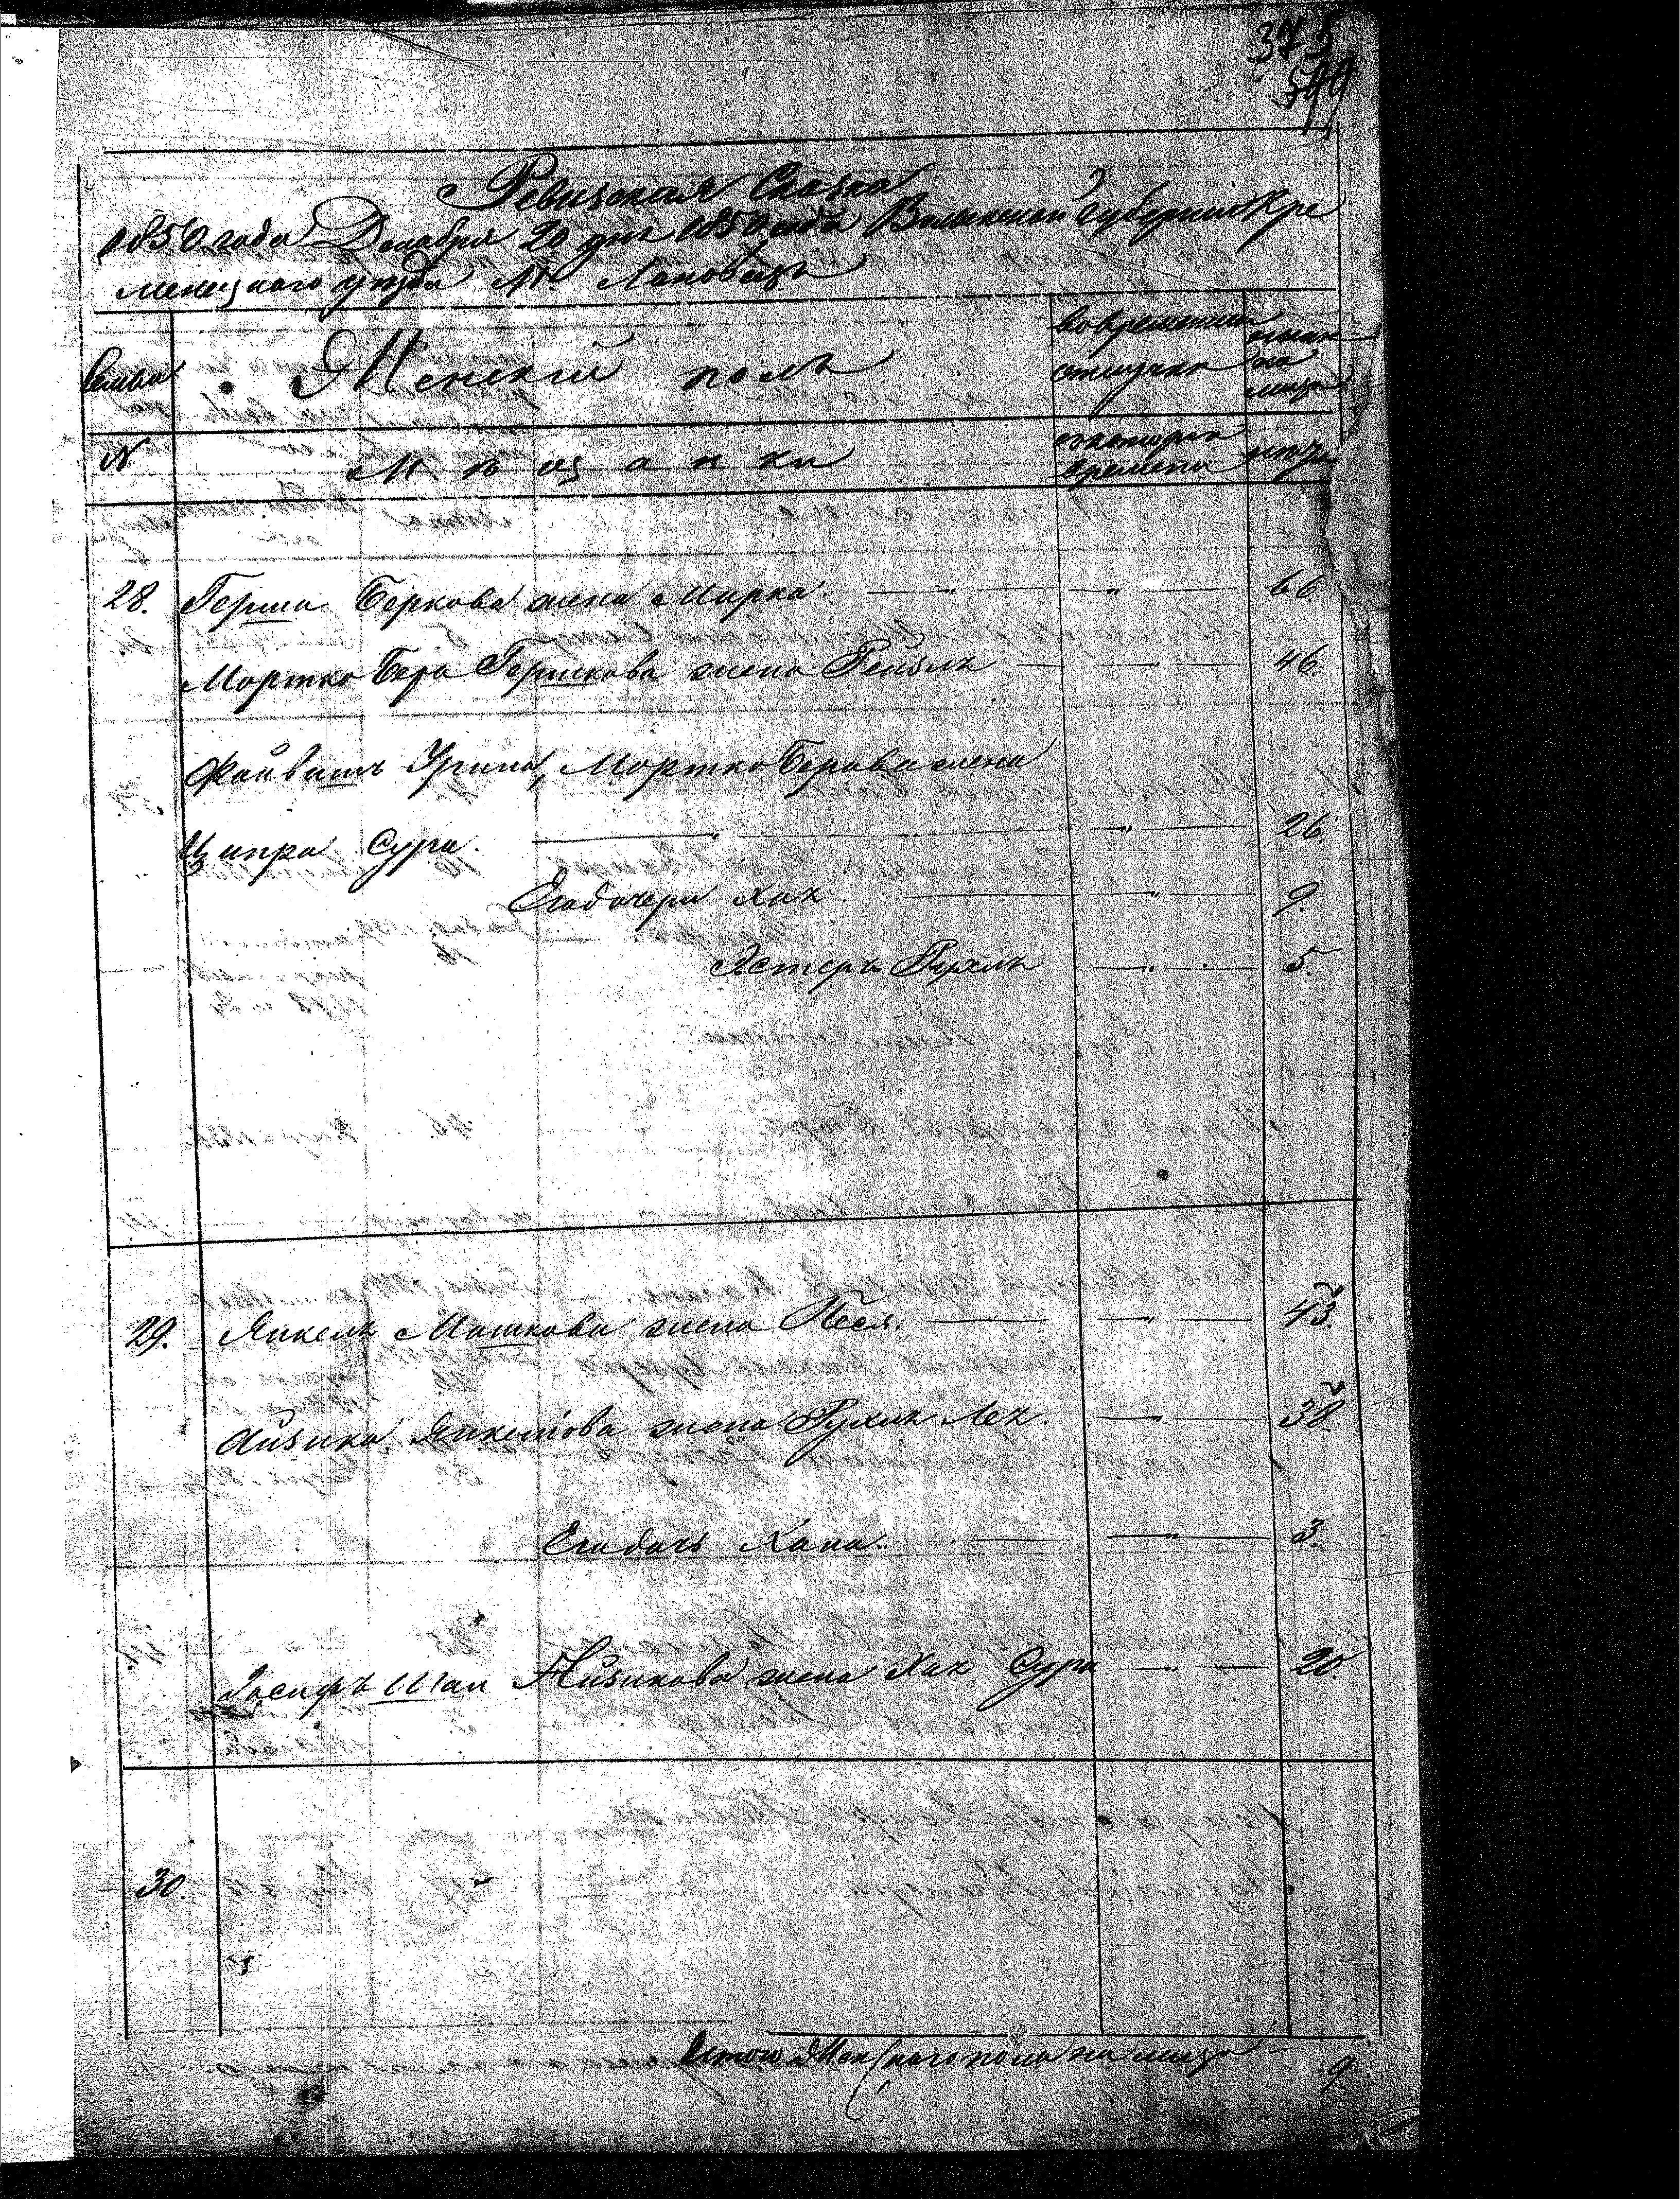 375
599
Ревизская Сказка
1850 года Декабря 20 дня 1850 года Волынской губернии Кре
менецкого уезда М. Лановецъ
Семьи
Женский полъ
вовременной
отлучке
ныне
на
лицо
N
Мещанки
скотораго
времени
лета
28. Герша Беркова жена Мирка. — " — " — 66.
Мортко Бера Гершкова жена Рейзля — " — 46.
Файвишъ Урина, Мортко Берова жена
Ципра Сура. — " — 26.
Егодочери Хая. — " — 9.
Эстеръ Рухля — " — 5.
29. Янкеля Мошкова жена Песя. — " — 43.
Айзика Янкелова жена Рухля Лея. — " — 38.
Егодочь Хана. — " — 3.
Иосифъ Шая Айзикова жена Хая Сура — " — 20.
30.
Итого Женскаго пола на лицо 9